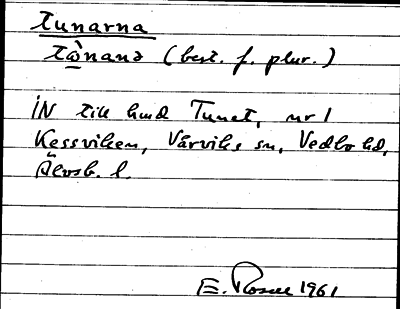 tunarna
tὼnanə (best. f. plur.)
iN till hmd Tunet, nr 1
Kessviken, Vårviks sn, Vedbo hd,
Älvsb. l.
E. Rosell 1961